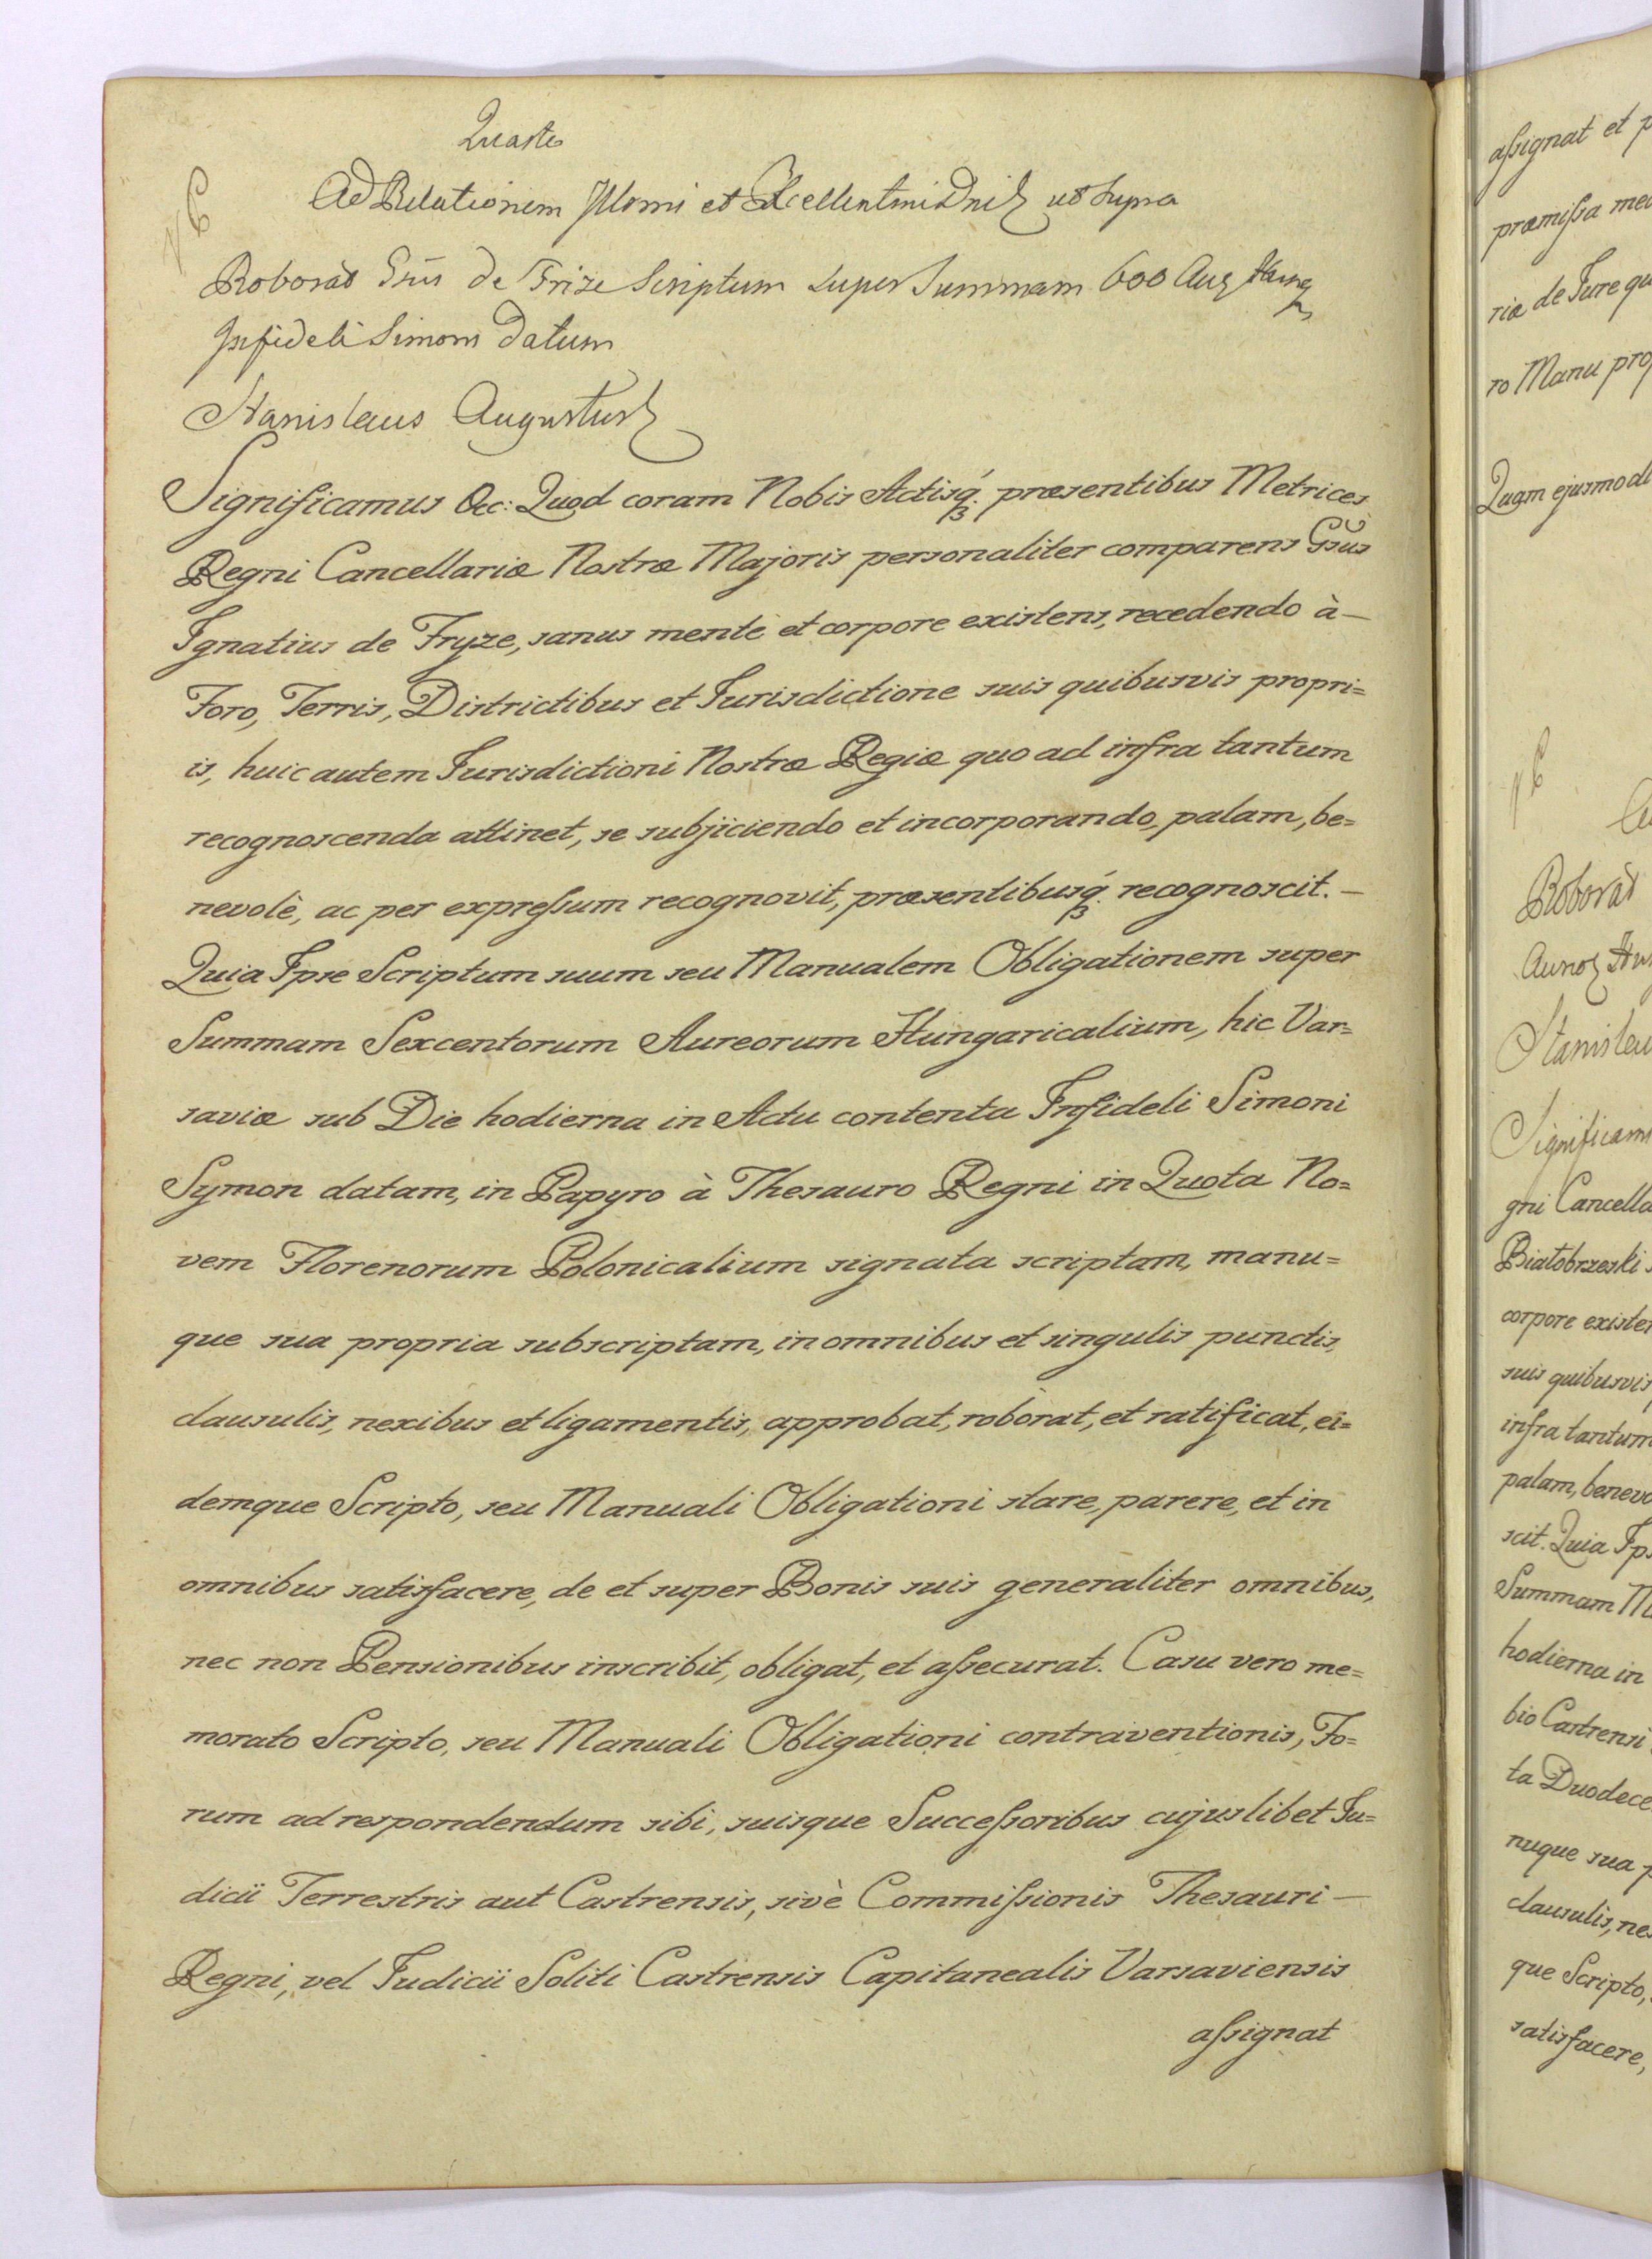 Quarto
Ad Relationem Jllmi et Excellentmi Dni ut supra
Roborat Gsus de Frize Scriptum super Summam 600 Aur Hung
Infideli Simoni datum
Stanislaus Augustus
Significamus &c: Quod coram Nobis Actisq́; præsentibus Metrices
Regni Cancellariæ Nostræ Majoris personaliter comparens Gsus
Ignatius de Fryze, sanus mente et corpore existens, recedendo à —
Foro, Terris, Districtibus et Jurisdictione suis quibusvis propri=
is, huic autem Jurisdictioni Nostræ Regiæ quo ad infra tantum
recognoscenda attinet, se subjiciendo et incorporando, palam, be=
nevolè, ac per expreſsum recognovit, præsentibusq́; recognoscit. —
Quia Ipse Scriptum suum seu Manualem Obligationem super
Summam Sexcentorum Aureorum Hungaricalium, hic Var=
saviæ sub Die hodierna in Actu contenta Infideli Simoni
Symon datam, in Papyro à Thesauro Regni in Quota No=
vem Florenorum Polonicalium signata scriptam, manu=
que sua propria subscriptam, in omnibus et singulis punctis,
clausulis, nexibus et ligamentis, approbat, roborat, et ratificat, ei=
demque Scripto, seu Manuali Obligationi stare, parere, et in
omnibus satisfacere, de et super Bonis suis generaliter omnibus,
nec non Pensionibus inscribit, obligat, et aſsecurat. Casu vero me=
morato Scripto, seu Manuali Obligationi contraventionis, Fo=
rum ad respondendum sibi, suisque Succeſsoribus cujuslibet Ju=
dicii Terrestris aut Castrensis, sivè Commiſsionis Thesauri —
Regni, vel Judicii Soliti Castrensis Capitanealis Varsaviensis
aſsignat
aſsignat et
præmiſsa
riæ de Jure
ro Manu
Quam ejusmodi
Roborat
Stanislau
Significam
gni Cancella
Białobrzeski
corpore existen
suis quibusvis
infra tantum
palam, benevo
scit. Quia Ip
Summam
hodierna in
bio Castrensi
ta Duodece
nuque sua
clausulis, ne
que Scripto,
satisfacere,